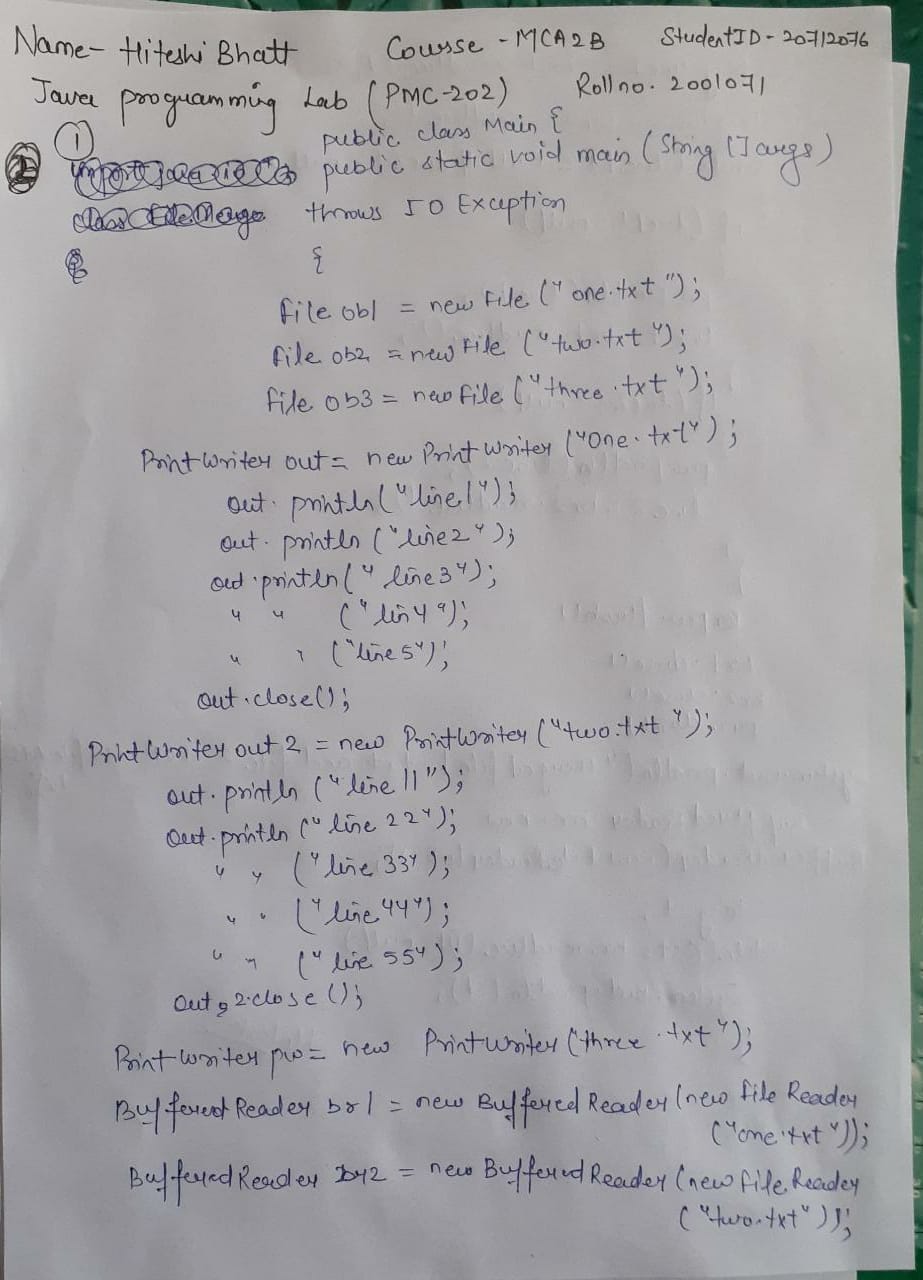 Name- Hiteshi Bhatt Course - MCA2B StudentID - 20712076
Java programming Lab (PMC-202) Roll no. 2001071
①
public class Main {
public static void main (String []args)
class FileMerge throws IO Exception
{
file ob1 = new File ("one.txt");
file ob2 = new File ("two.txt");
file ob3 = new file ("three.txt");
PrintWriter out = new PrintWriter ("One.txt");
out. println("line1");
out. println ("line2");
out.println(" line3");
" " ("lin4");
" " ("line5");
out.close();
PrintWriter out 2 = new PrintWriter ("two.txt");
out. println ("line 11");
out.println ("line 22");
" " ("line 33");
" " ("line 44");
" " ("line 55");
out 2.close ();
PrintWriter pw = new PrintWriter ("three.txt");
Buffered Reader br1 = new Buffered Reader (new file Reader
("one.txt"));
Buffered Reader br2 = new Buffered Reader (new file Reader
("two.txt"));